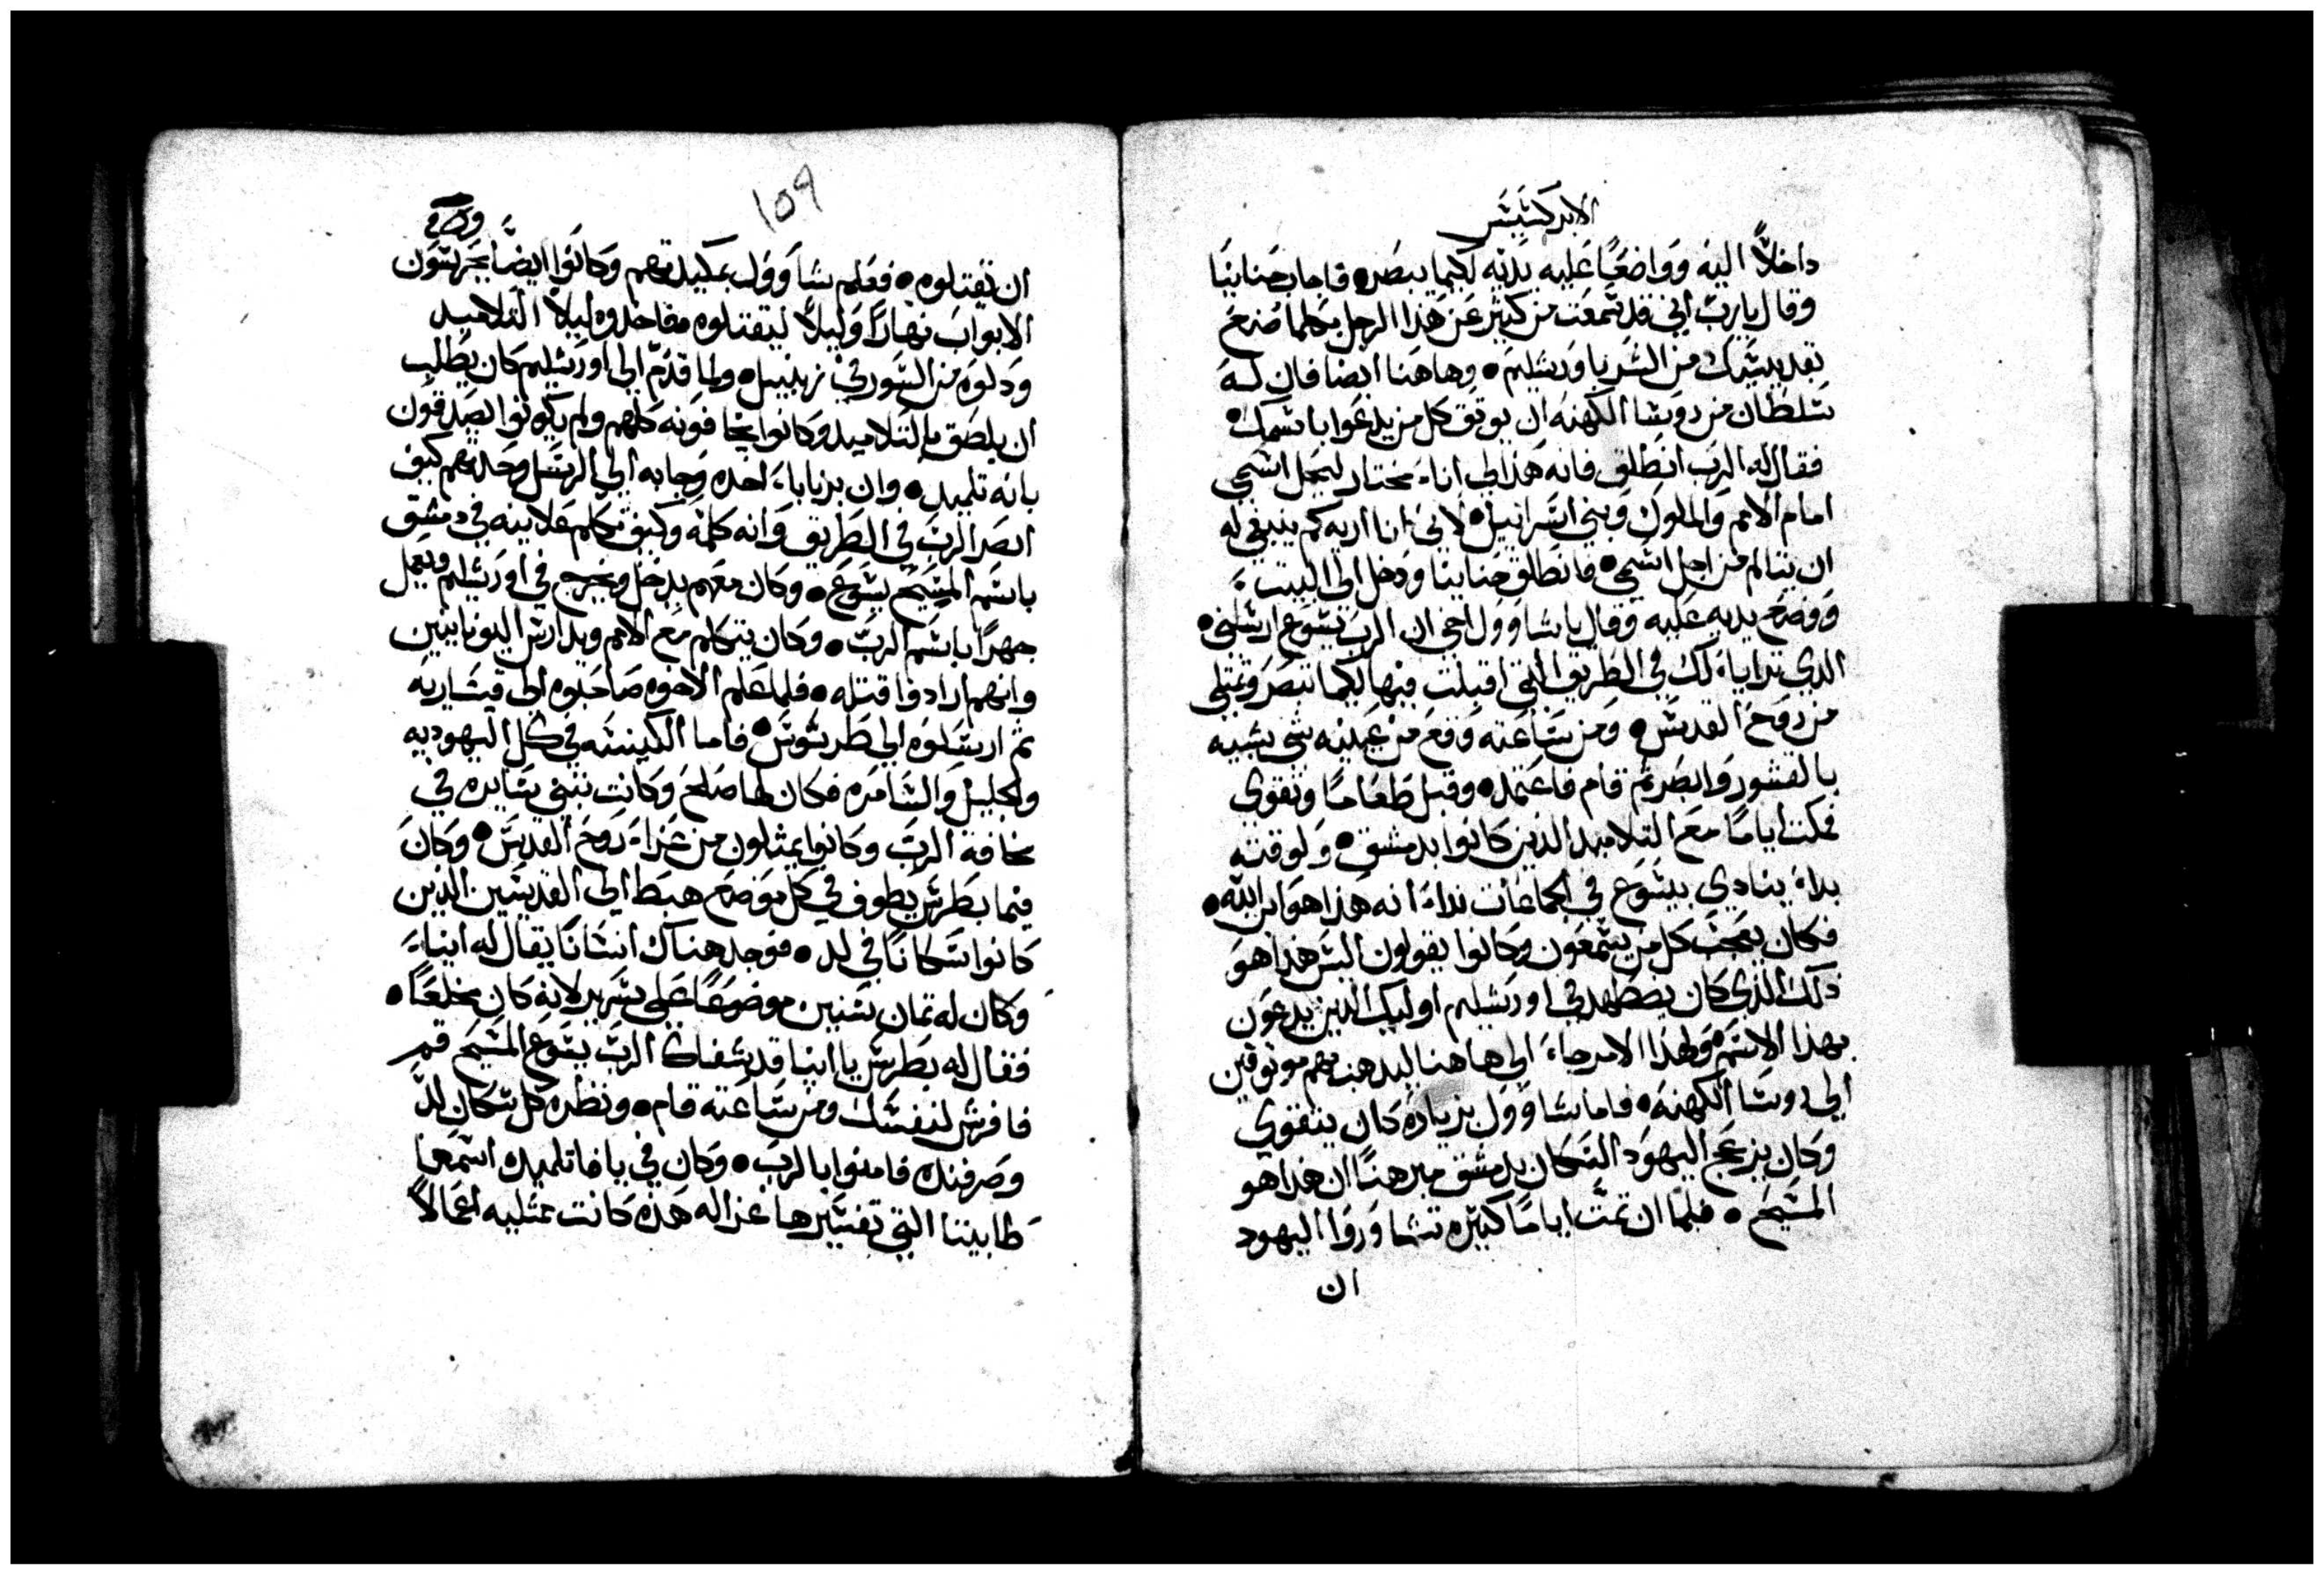 الابركسيس
داخلاً اليه وواضعًا عليه يديه لكيما يبصر • فاجاب حنانيا
وقال يارب اني قد سمعت من كثير عن هذا الرجل بكلما صنع
بقديسيك من الشر باورشليم • وهاهنا ايضا فان له
سلطان من روسا الكهنه ان يوثق كل من يدعوا باسمك •
فقال له الرب انطلق فانه هذا لي اناء مختار ليحمل اسمي
امام الامم والملوك وبني اسرائيل • لاني انا اريه كم ينبغي له
ان يتالم من اجل اسمي • فانطلق حنانيا ودخل الي البيت
ووضع يديه عليه وقال ياشاوول اخي ان الرب يسوع ارسلني •
الذي ترايا لك في الطريق التي اقبلت فيها لكيما تبصر وتمتلي
من روح القدس • ومن ساعته وقع من عينيه شي شبيه
بالقشور وابصر ثم قام فاعتمد • وقبل طعامًا وتقوي
فمكث ايامًا مع التلاميد الذين كانوا بدمشق • ولوقته
بداء ينادي بيسوع في الجماعات نداء انه هذا هو ابن الله •
فكان يعجب كل من يسمعون وكانوا يقولون اليس هذا هو
ذلك الذي كان يضطهد في اورشليم اوليك الذين يدعون
بهذا الاسم • ولهذا الامر جاء الي هاهنا ليدهب بهم موثوقين
الي روسا الكهنه • فاما شاوول بزياده كان يتقوي
وكان يزعج اليهود السكان بدمشق مبرهنًا ان هذا هو
المسيح • فلما ان تمت ايامًا كثيره تشاوروا اليهود
ان
١٥٩
ان تقتلوه • فعلم شاوول بمكيدتهم وكانوا ايضًا يحرسون
الابواب نهارًا وليلاً ليقتلوه فاخدوه ليلاً التلاميد
ودلوه من السور في زنبيل • ولما قدم الي اورشليم كان يطلب
ان يلصق بالتلاميد وكانوا يخافونه كلهم ولم يكونوا يصدقون
بانه تلميد • وان برنابا اخده وجابه الي الرسل وحدثهم كيف
ابصر الرب في الطريق وانه كلمه وكيف تكلم علانيه في دمشق
باسم المسيح يسوع • وكان معهم يدخل ويخرج في اورشليم ويعمل
جهرًا باسم الرب • وكان يتكلم مع الامم ويدارس اليونانيين
وانهم ارادوا قتله • فلما علم الاخوه صاحبوه الي قيساريه
ثم ارسلوه الي طرسوس • فاما الكنيسه في كل اليهوديه
والجليل والسامره فكان لها صلح وكانت تبني سايره في
مخافة الرب وكانوا يمثلون من عزاء روح القدس • وكان
فيما بطرس يطوف في كل موضع هبط الي القديسين الذين
كانوا سكانًا في لد • فوجد هناك انسانًا يقال له اينياء
وكان له تمان سنين موضوعًا علي سرير لانه كان مخلعًا •
فقال له بطرس يا اينيا قد شفاك الرب يسوع المسيح قم
فافرش لنفسك ومن ساعته قام • ونظره كل سكان لد
وصرفند فامنوا بالرب • وكان في يافا تلميده اسمها
طابيتا التي تفسيرها غزاله هذه كانت ممتليه اعمالاً